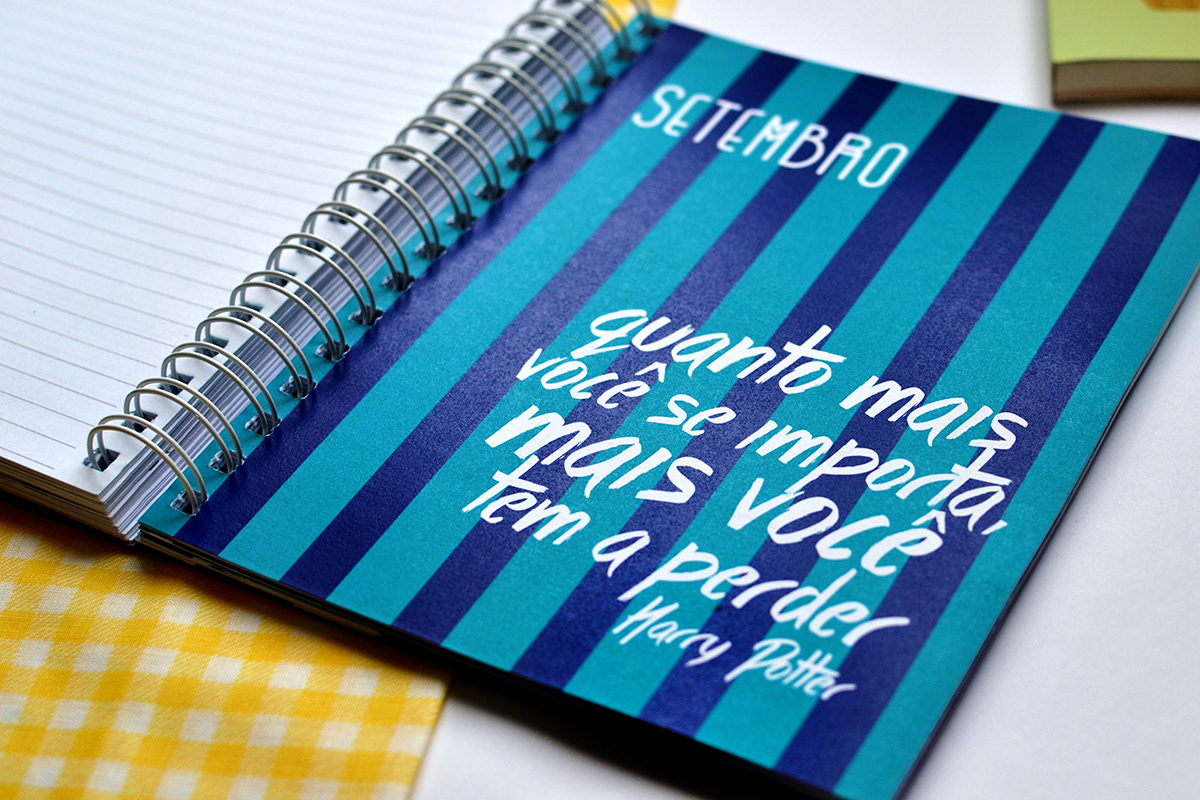 SETEMBRO
quanto mais
você se importa,
mais você
tem a perder
Harry Potter